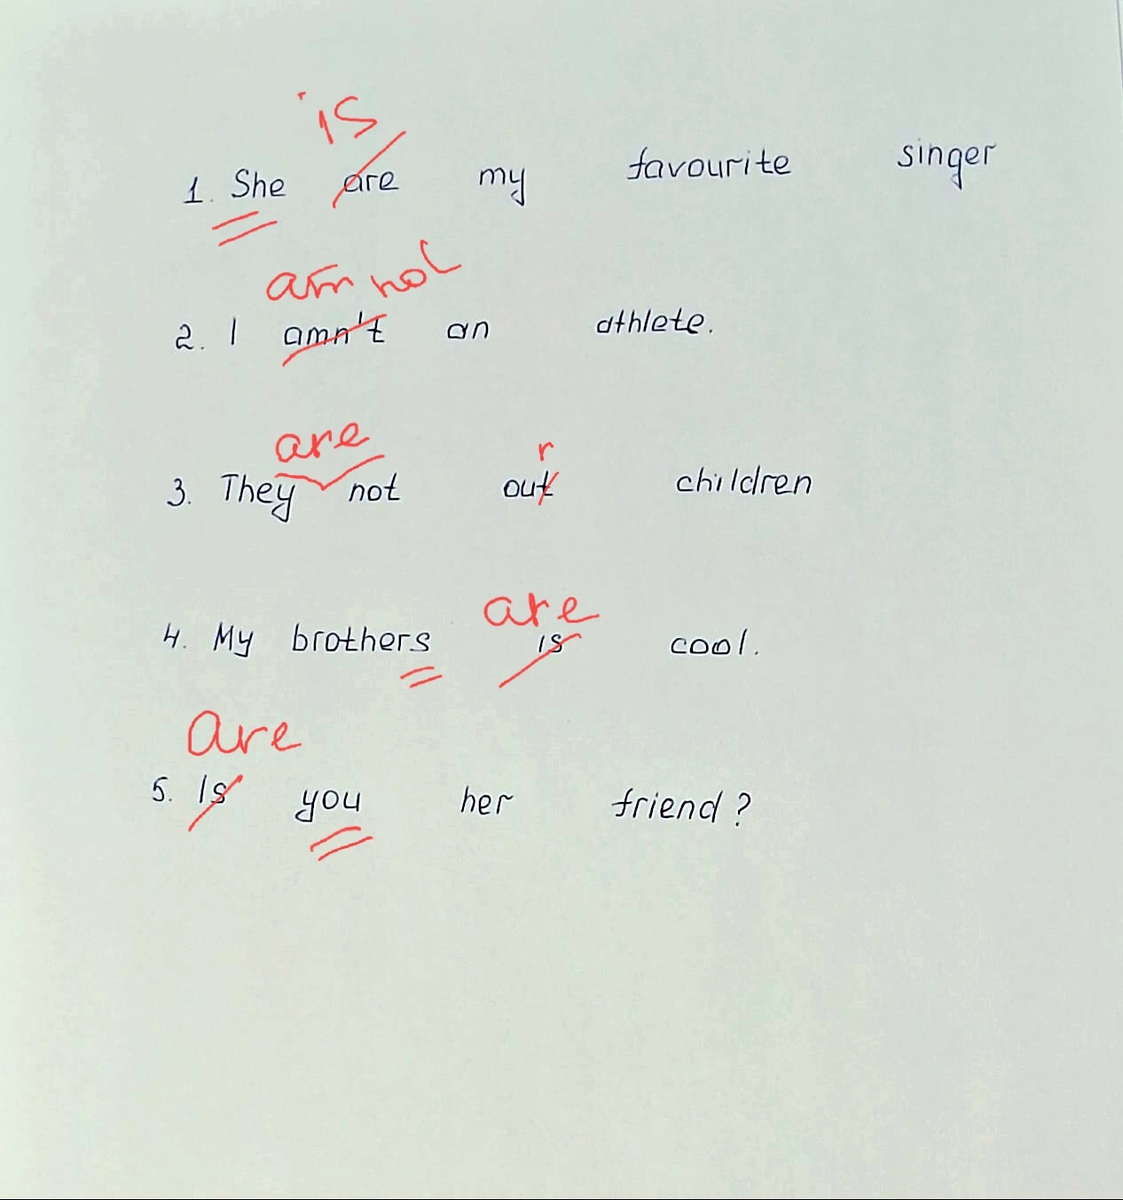 is
1. She are my favourite singer
am not
2. I amn't an athlete.
are r
3. They not out children
are
4. My brothers is cool.
are
5. Is you her friend?